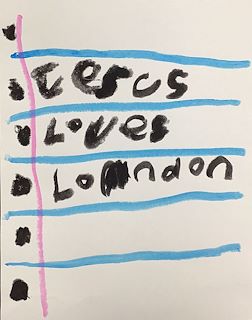 Jesus
Loves
Lomndon